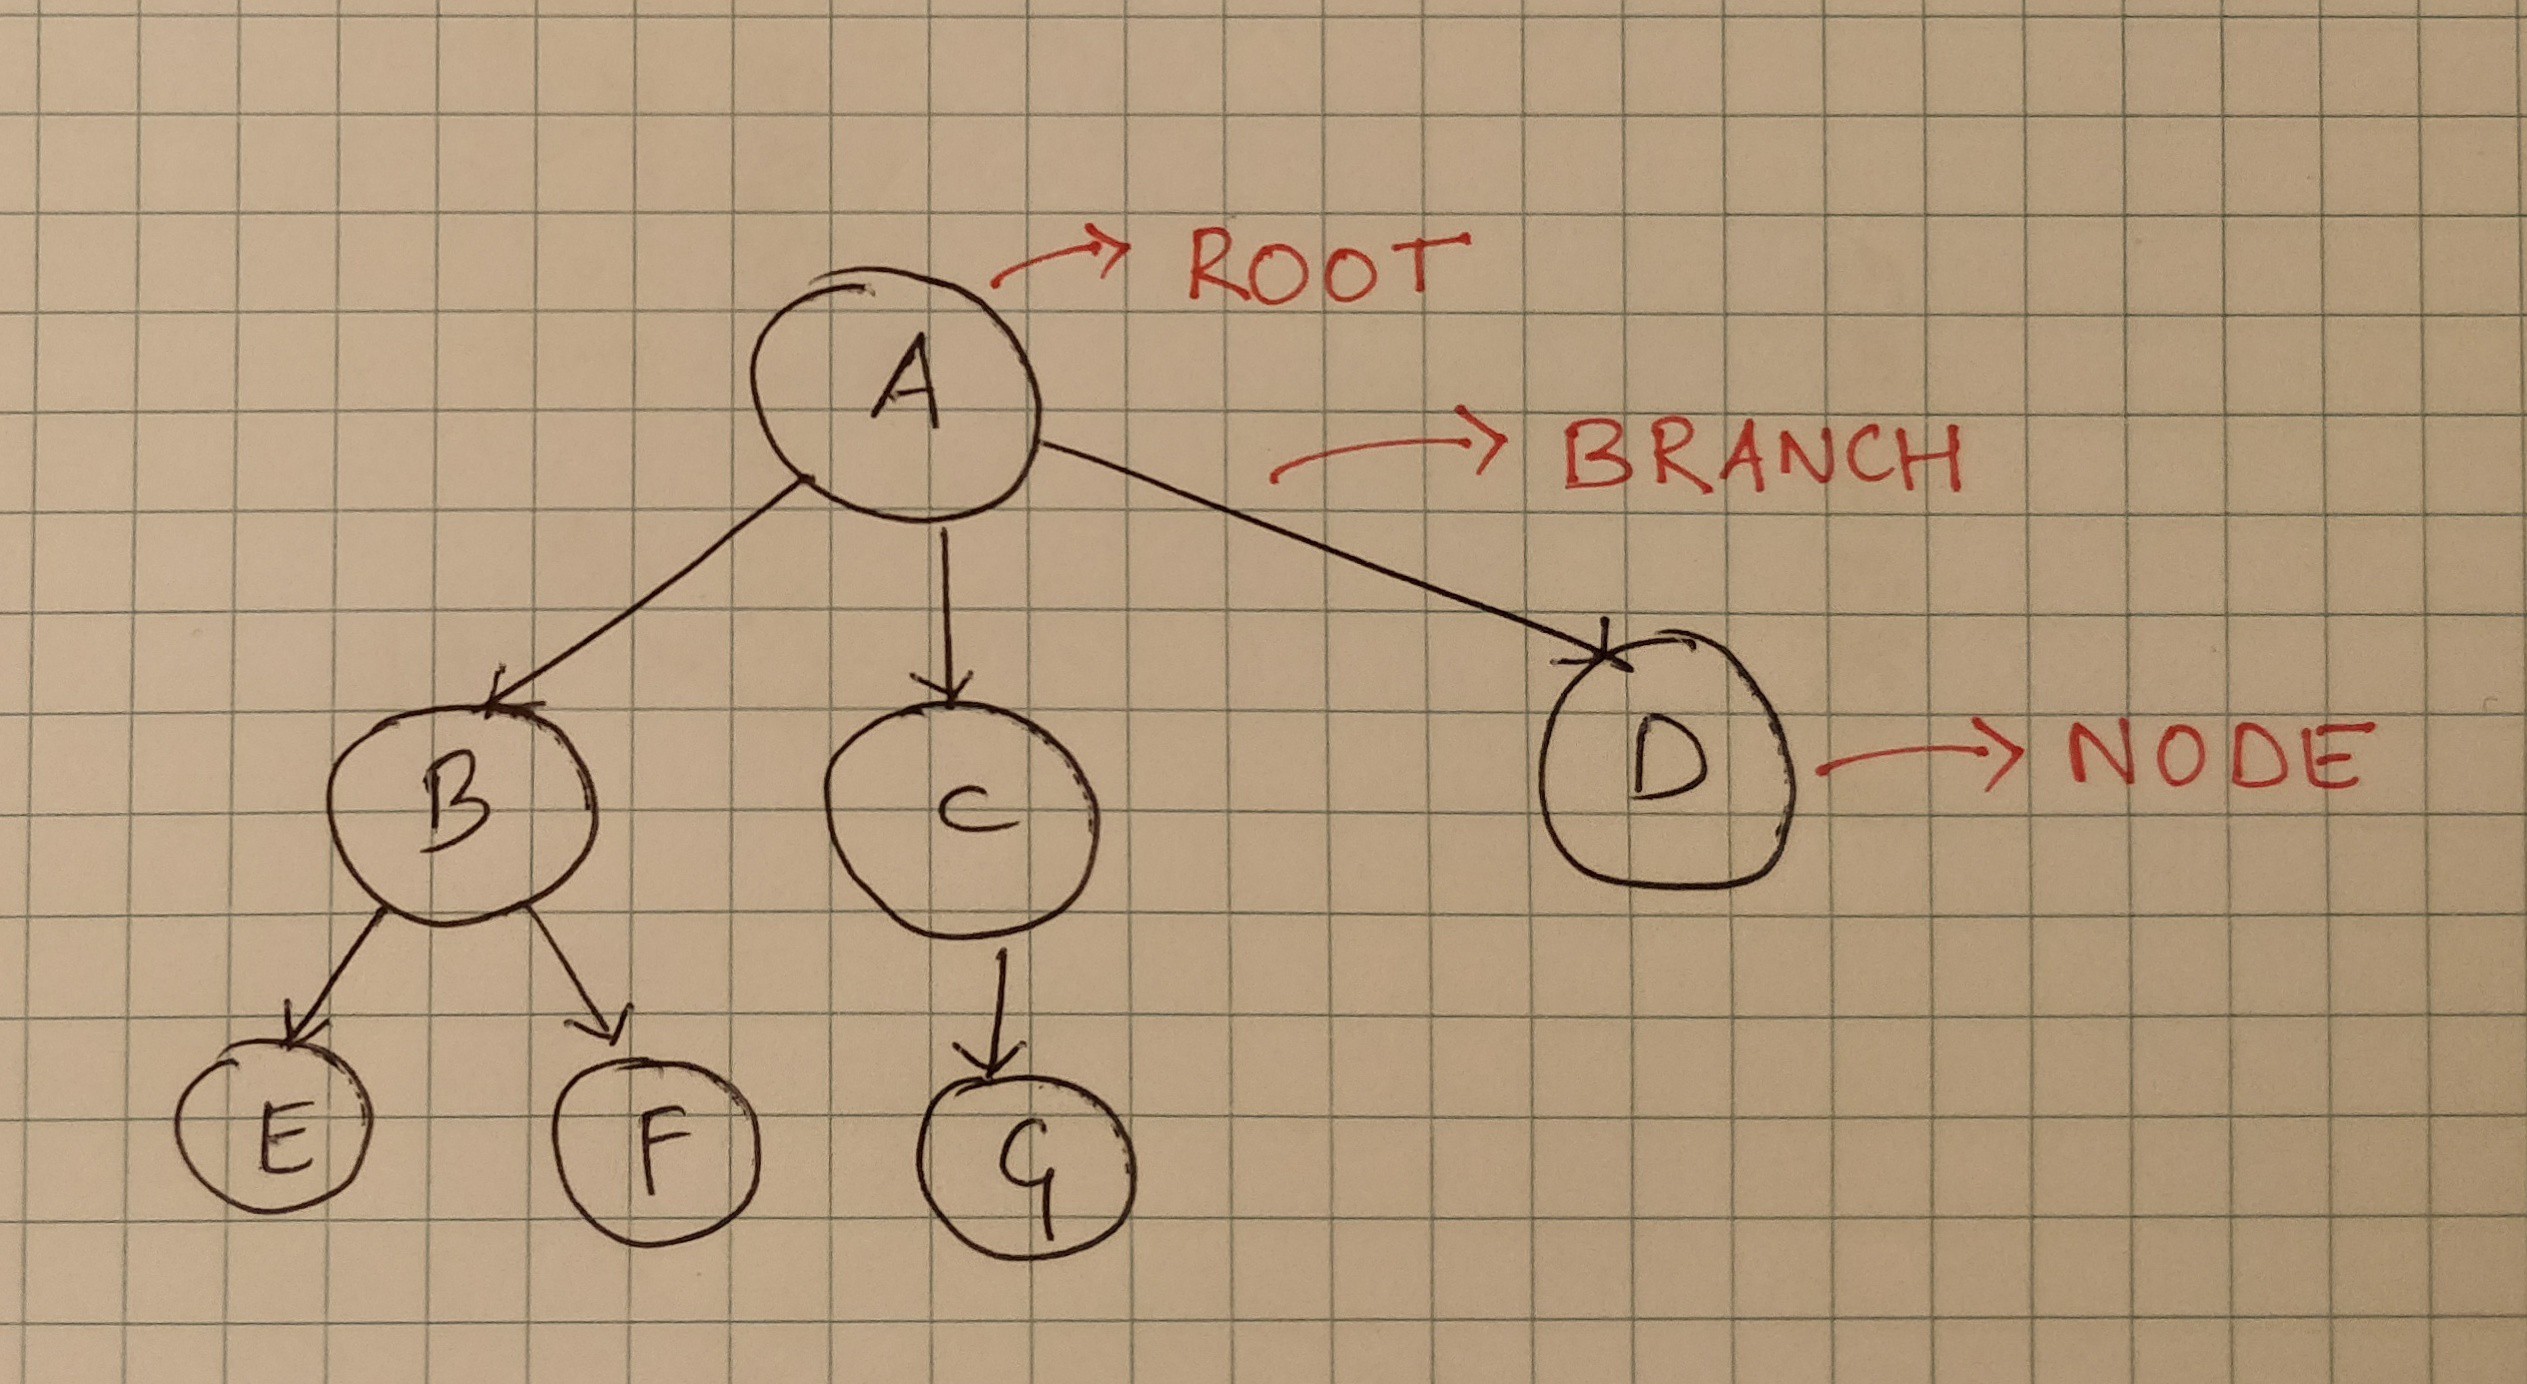 ROOT
A
BRANCH
B
C
D
NODE
E
F
G